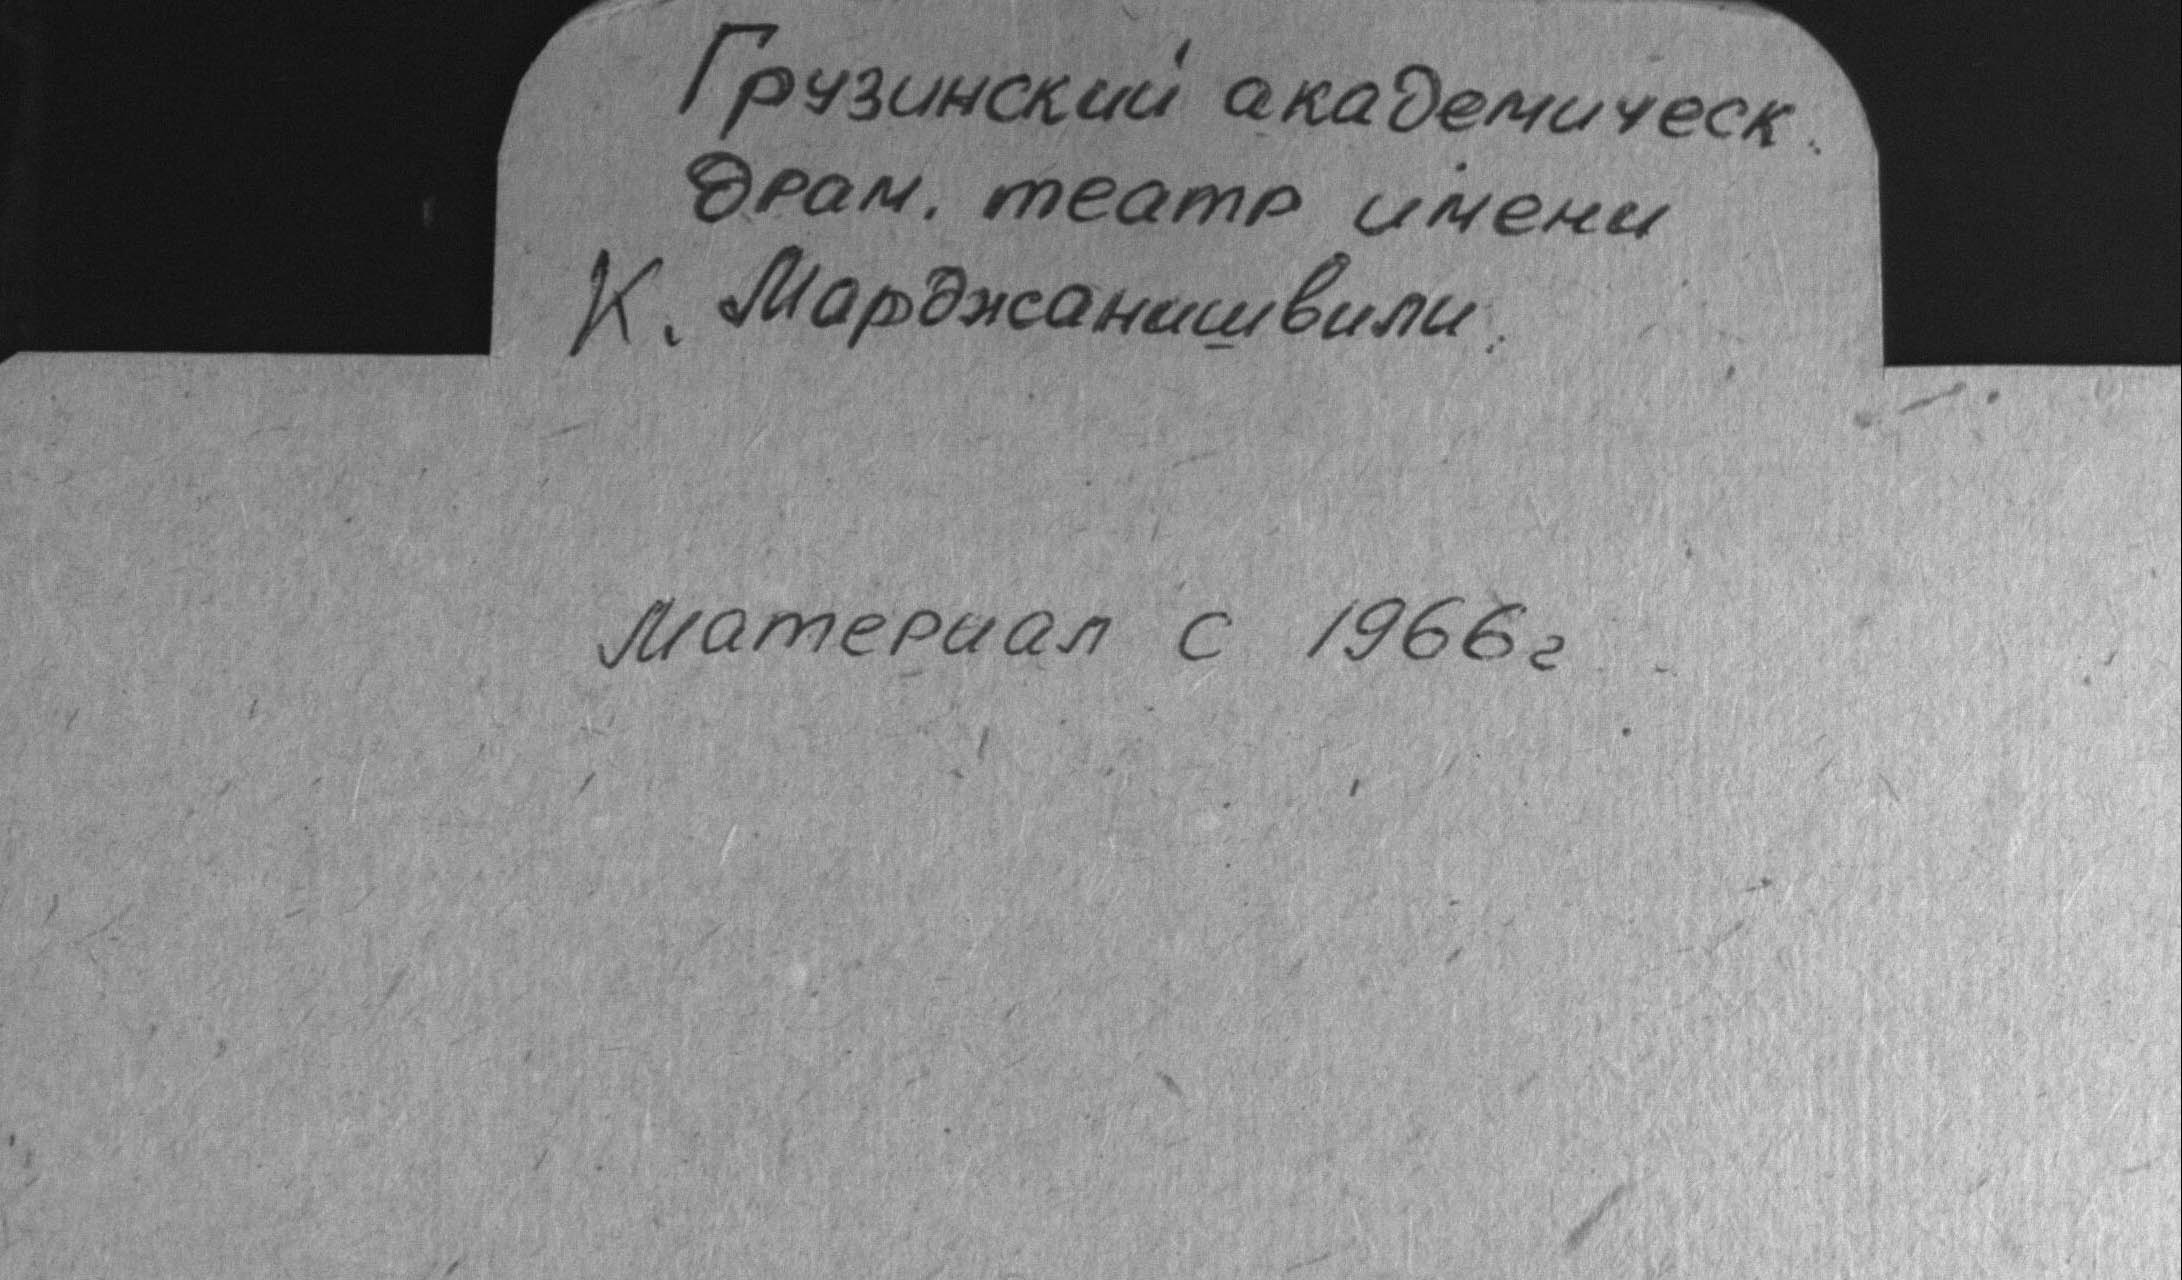 Грузинский академическ.
драм. театр имени
К. Марджанишвили.
Материал с 1966г